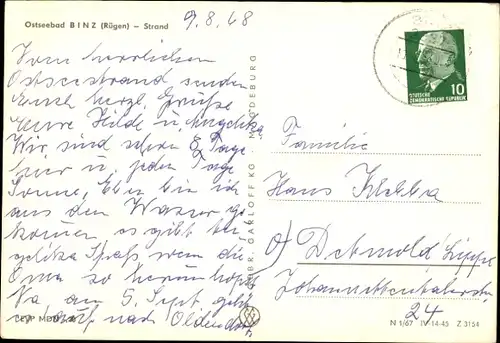 Ostseebad BINZ (Rügen) – Strand
9.8.68
Vom herrlichen
Ostseestrand senden
Euch herzl. Grüße
Eure Hilde u. Angelika
Wir sind schon 8 Tage
hier u. jeden Tag
Sonne, Eben bin ich
aus dem Wasser ge
kommen es gibt
Spaß wenn die
Oma so herumhopst
Na am 5. Sept. geht
es auf nach Oldendorf
GEBR. GARLOFF KG MAGDEBURG
10
DEUTSCHE
DEMOKRATISCHE REPUBLIK
Familie
Hans
Detmold/Lippe
24
N 1/67 IV-14-45 Z 3154